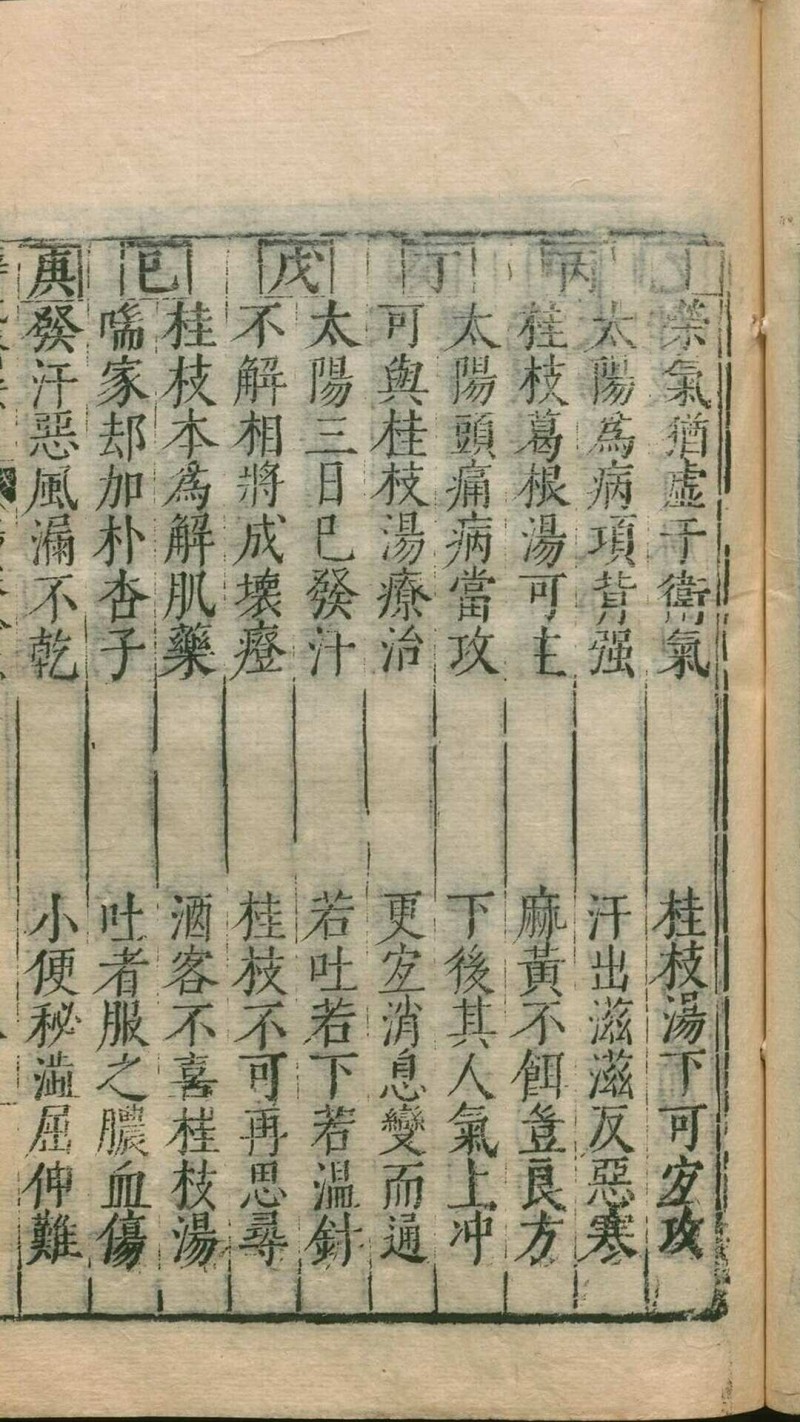 榮氣猶虛于衛氣　桂枝湯下可宐攻
丙　太陽為病項背强　汗出滋滋反惡寒
桂枝葛根湯可主　麻黃不餌豈良方
丁　太陽頭痛病當攻　下後其人氣上冲
可與桂枝湯療治　更宐消息變而通
戊　太陽三日巳發汁　若吐若下若溫針
不解相將成壞癥　桂枝不可再思尋
巳　桂枝本為解肌藥　酒客不喜桂枝湯
喘家却加朴杏子　吐者服之膿血傷
庚　發汗惡風漏不乾　小便秘澁屈伸難